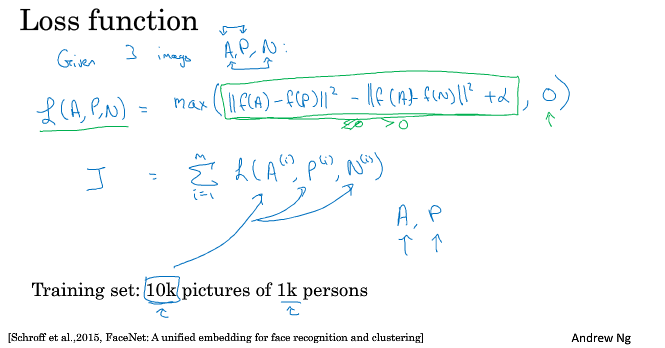 Loss function
Given 3 images A, P, N:
L(A,P,N) = max(||f(A)-f(P)||² - ||f(A)-f(N)||² + α, 0)
≤0 >0
J = Σ L(A⁽ⁱ⁾, P⁽ⁱ⁾, N⁽ⁱ⁾)
m
i=1
A, P
Training set: 10k pictures of 1k persons
[Schroff et al.,2015, FaceNet: A unified embedding for face recognition and clustering]
Andrew Ng